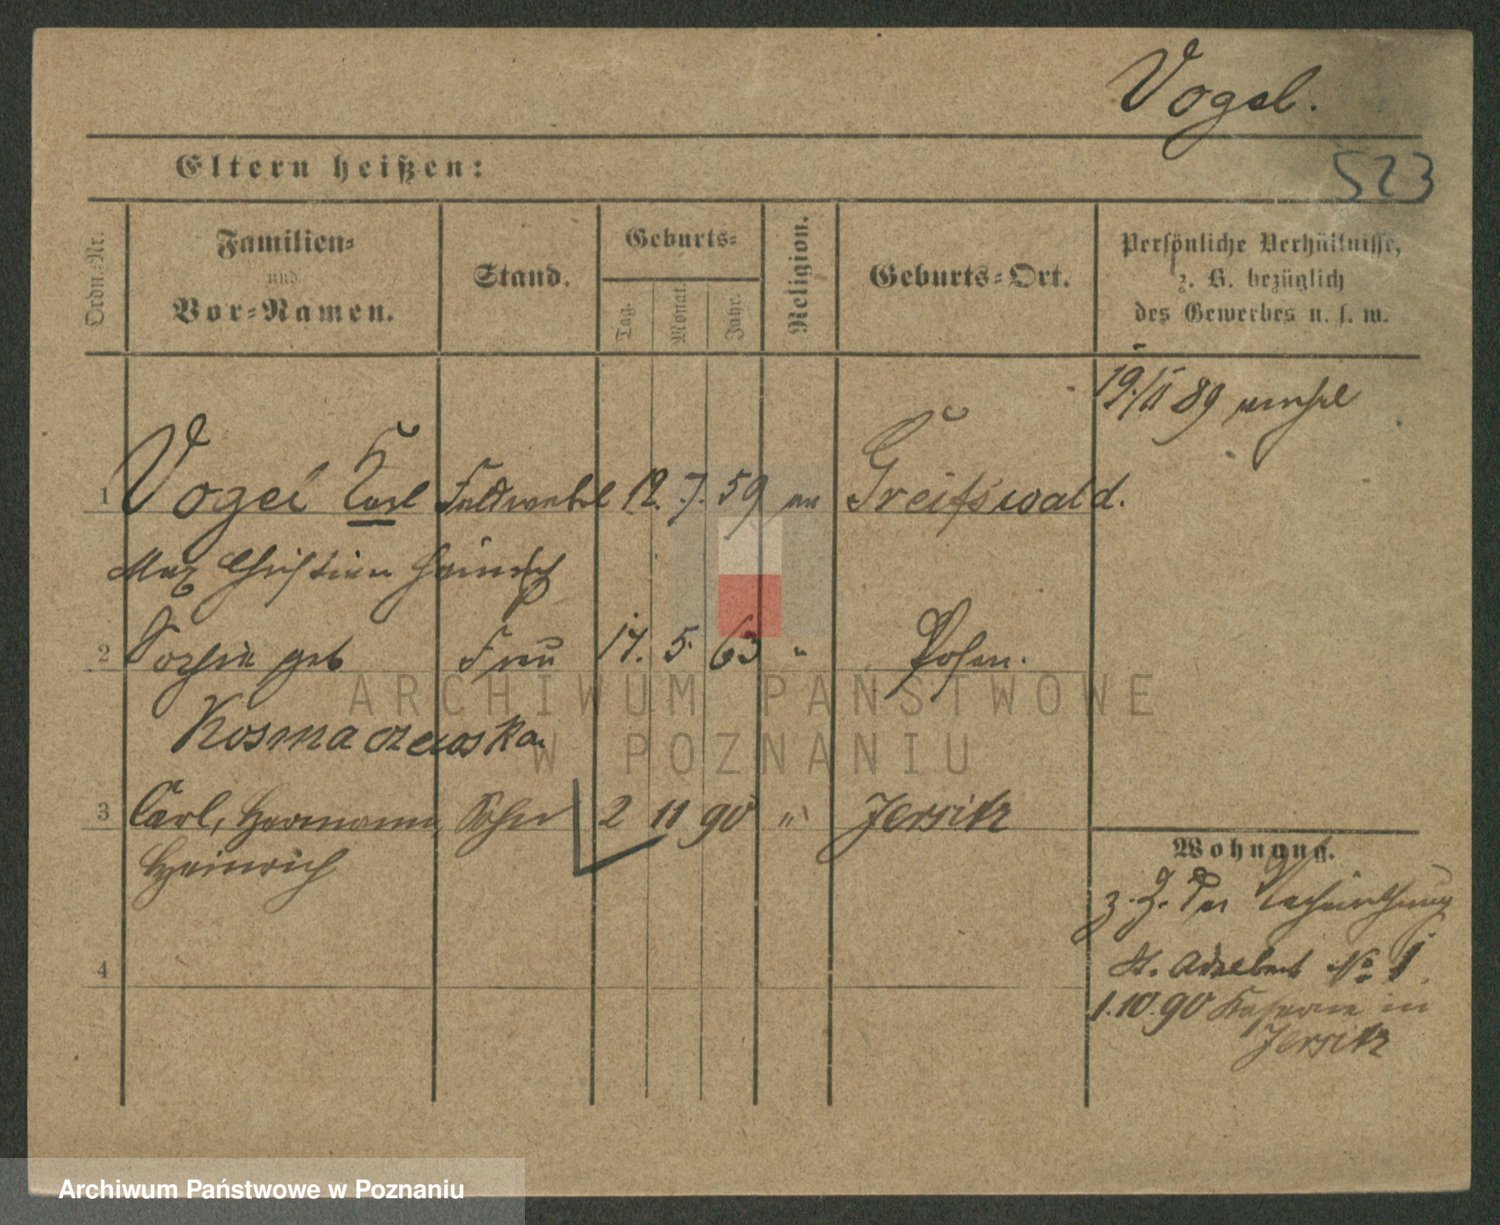 Vogel.
523
Eltern heißen:
Ordn.-Nr.
Familien-
und
Vor-Namen.
Stand.
Geburts-
Tag.
Monat.
Jahr.
Religion.
Geburts-Ort.
Persönliche Verhältnisse,
z. B. bezüglich
des Gewerbes u. s. w.
19./11 89
1 Vogel Karl Feldwebel 12. 7. 59 ev Greifswald.
Max Christian Heinrich
2 Sophie geb Frau 17. 5. 63 " Posen.
Kosmaczewska
3 Carl, Hermann, Sohn 2 11 90 " Jersitz
Heinrich
4
Wohnung.
z. Z. der
St. Adalbert No 1
1.10.90 Kaserne in
Jersitz
ARCHIWUM PAŃSTWOWE
W POZNANIU
Archiwum Państwowe w Poznaniu